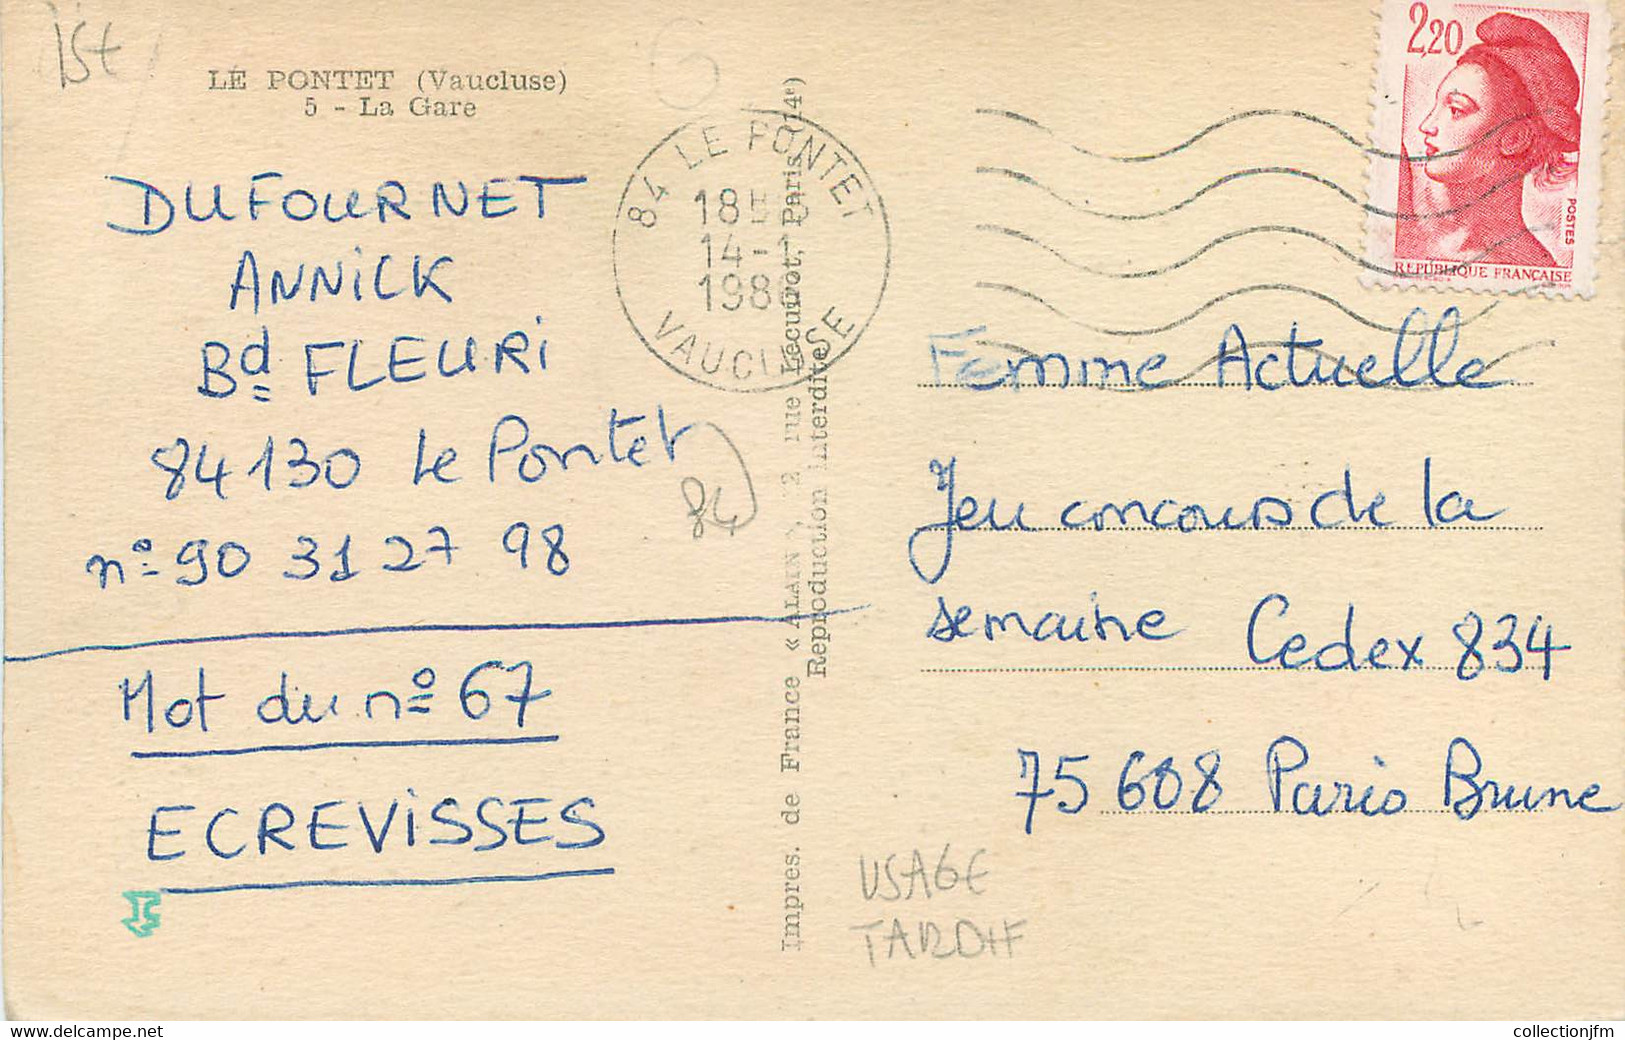 15€
LE PONTET (Vaucluse)
5 - La Gare
DUFOURNET
ANNICK
Bd FLEURI
84130 Le Pontet
n° 90 31 27 98
84
Mot du n° 67
ECREVISSES
84 LE PONTET
18H
14-1
198
VAUCLUSE
Impres. de France « ALAIN », rue Lécuirot, Paris 14e)
Reproduction interdite
2,20
POSTES
REPUBLIQUE FRANCAISE
Femme Actuelle
Jeu concours de la
semaine Cedex 834
75608 Paris Brune
USAGE
TARDIF
www.delcampe.net
collectionjfm